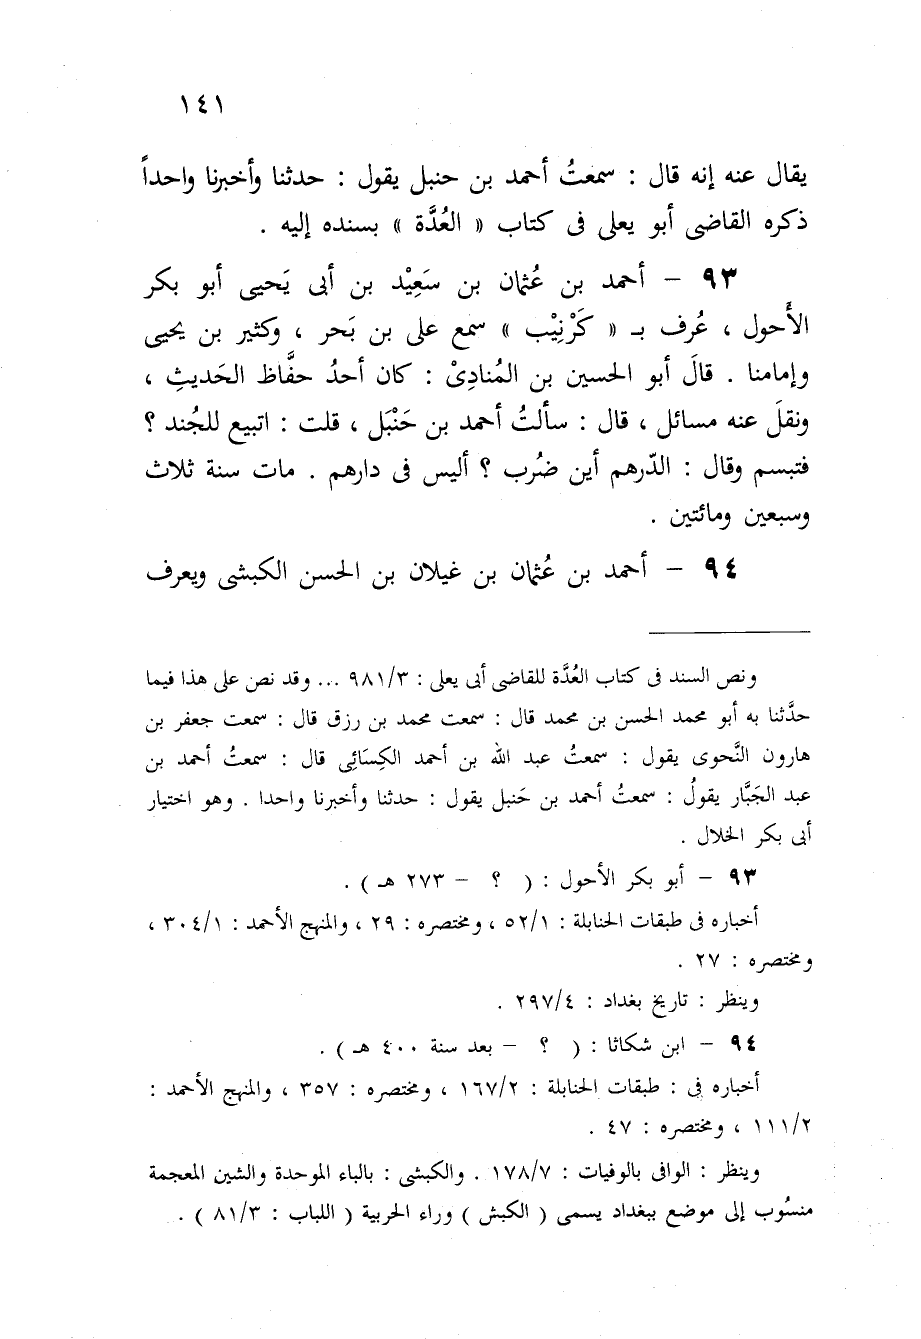 ١٤١
يقال عنه إنه قال : سمعتُ أحمد بن حنبل يقول : حدثنا وأخبرنا واحداً
ذكره القاضى أبو يعلى فى كتاب « العُدَّة » بسنده إليه .
٩٣ – أحمد بن عُثمان بن سَعِيْد بن أبى يَحيى أبو بكر
الأَحول ، عُرف بـ « كَرْنِيْب » سمع على بن بَحر ، وكثير بن يحيى
وإمامنا . قالَ أبو الحسين بن المُنادِىْ : كان أحدُ حفَّاظ الحَديثِ ،
ونقلَ عنه مسائل ، قال : سألتُ أحمد بن حَنْبَل ، قلت : اتبيع للجُند ؟
فتبسم وقال : الدّرهم أين ضُرب ؟ أليس فى دارهم . مات سنة ثلاث
وسبعين ومائتين .
٩٤ – أحمد بن عُثمان بن غيلان بن الحسن الكبشى ويعرف
ونص السند فى كتاب العُدَّة للقاضى أبى يعلى : ٩٨١/٣ ... وقد نص على هذا فيما
حدَّثنا به أبو محمد الحسن بن محمد قال : سمعت محمد بن رزق قال : سمعت جعفر بن
هارون النَّحوى يقول : سمعتُ عبد الله بن أحمد الكِسَائِى قال : سمعتُ أحمد بن
عبد الجَبَّار يقولُ : سمعتُ أحمد بن حَنبل يقول : حدثنا وأخبرنا واحدا . وهو اختيار
أبى بكر الخلال .
٩٣ – أبو بكر الأحول : ( ؟ – ٢٧٣ هـ ) .
أخباره فى طبقات الحنابلة : ٥٢/١ ، ومختصره : ٢٩ ، والمنهج الأحمد : ٣٠٤/١ ،
ومختصره : ٢٧ .
وينظر : تاريخ بغداد : ٢٩٧/٤ .
٩٤ – ابن شكاثا : ( ؟ – بعد سنة ٤٠٠ هـ ) .
أخباره فى : طبقات الحنابلة : ١٦٧/٢ ، ومختصره : ٣٥٧ ، والمنهج الأحمد :
١١١/٢ ، ومختصره : ٤٧ .
وينظر : الوافى بالوفيات : ١٧٨/٧ . والكبشى : بالباء الموحدة والشين المعجمة
منسُوب إلى موضع ببغداد يسمى ( الكبش ) وراء الحربية ( اللباب : ٨١/٣ ) .